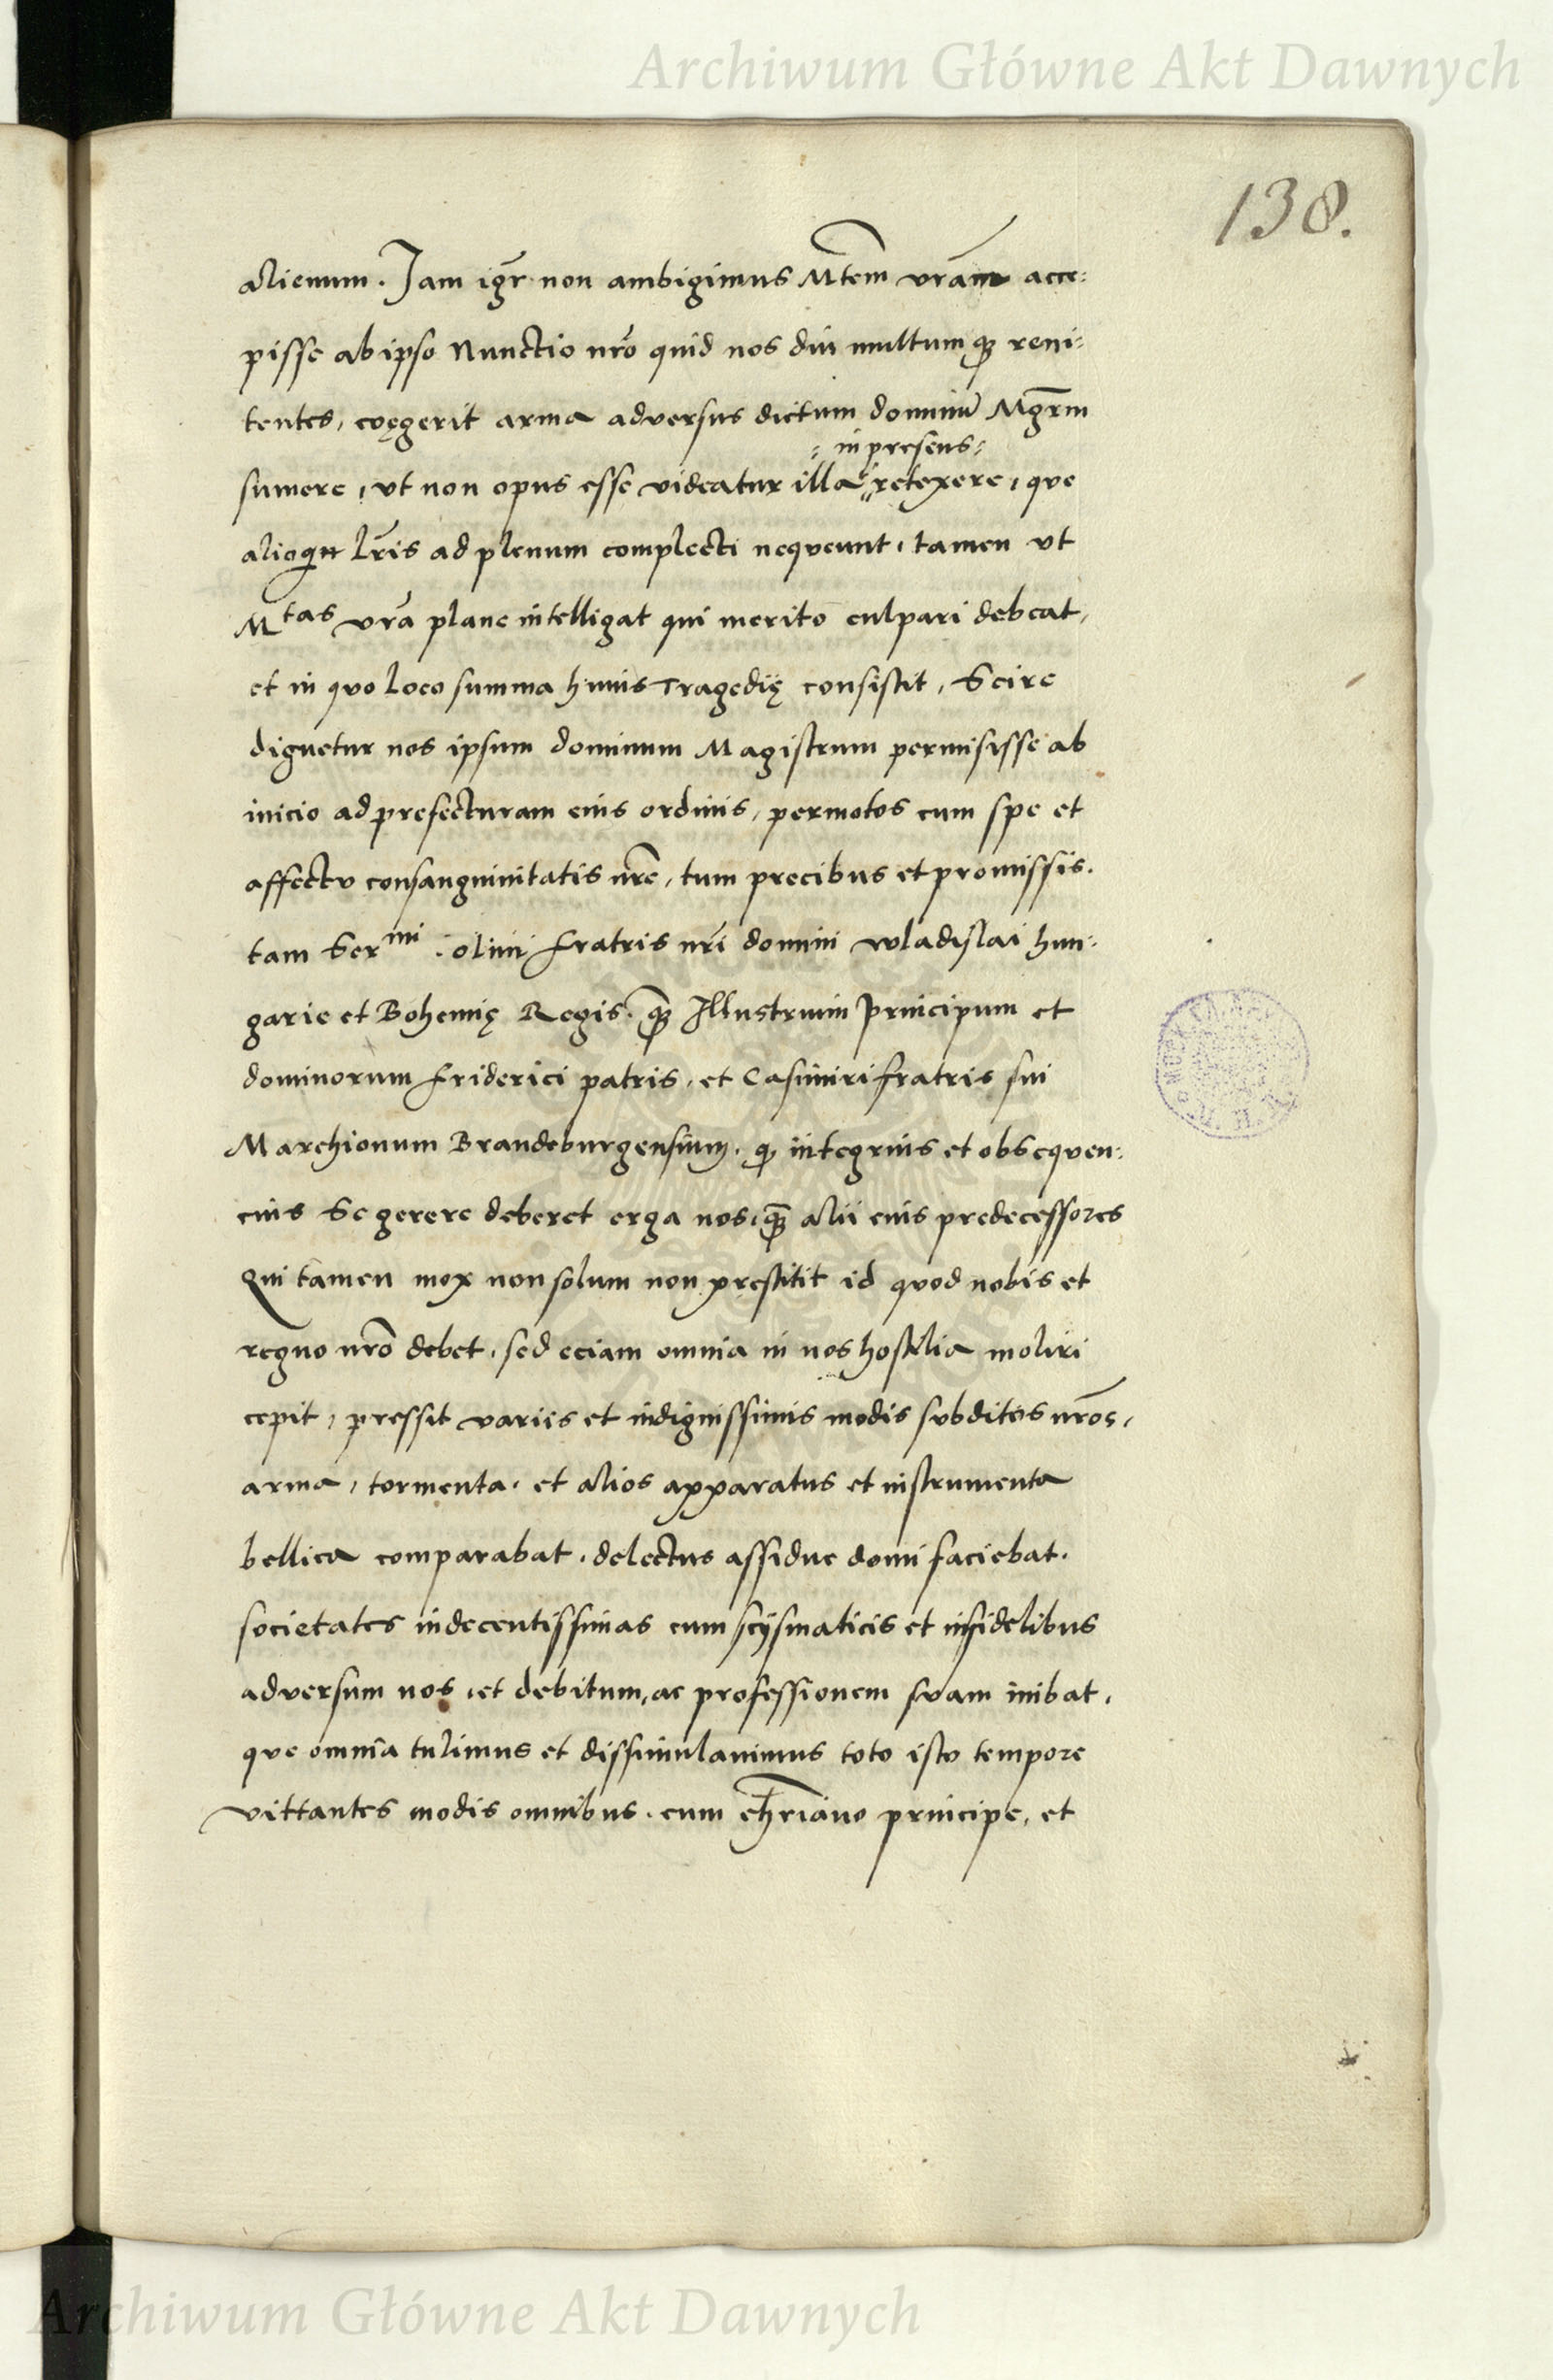 Archiwum Główne Akt Dawnych
138.
alienum. Jam igr̄ non ambigimus Mtem̄ vrām acce:
pisse ab ipso Nunctio nrō quid nos diu multumqȝ reni:
tentes, coęgerit arma adversus dictum dominū Mgrm̄
: in presens :
sumere, vt non opus esse videatur illa retexere, que
alioqn lrīs ad plenum complecti nequeunt, tamen vt
Mtas vrā plane intelligat qui merito culpari debeat,
et in quo loco summa huius Tragedię consistit, Scire
dignetur nos ipsum dominum Magistrum permisisse ab
inicio ad prefecturam eius ordinis, permotos cum spe et
affectu consanguinitatis nrē, tum precibus et promissis.
tam Sermi . olim fratris nrī domini wladislai hun:
garie et Bohemię Regis. qȝ̄ Illustrium Principum et
dominorum friderici patris, et Casimiri fratris sui
Marchionum Brandeburgensium. qȝ integrius et obsequen:
cius Se gerere deberet erga nos, qȝ̄ alii eius predecessores
Qui tamen mox non solum non prestitit id quod nobis et
regno nrō debet, sed eciam omnia in nos hostilia moliri
cepit, pressit variis et indignissimis modis subditos nrōs,
arma, tormenta, et alios apparatus et instrumenta
bellica comparabat, delectus assidue domi faciebat.
societates indecentissimas cum scysmaticis et infidelibus
adversum nos, et debitum, ac professionem suam inibat,
que omnia tulimus et dissimulavimus toto isto tempore
vittantes modis omnibus. cum chr̄iano principe, et
Archiwum Główne Akt Dawnych